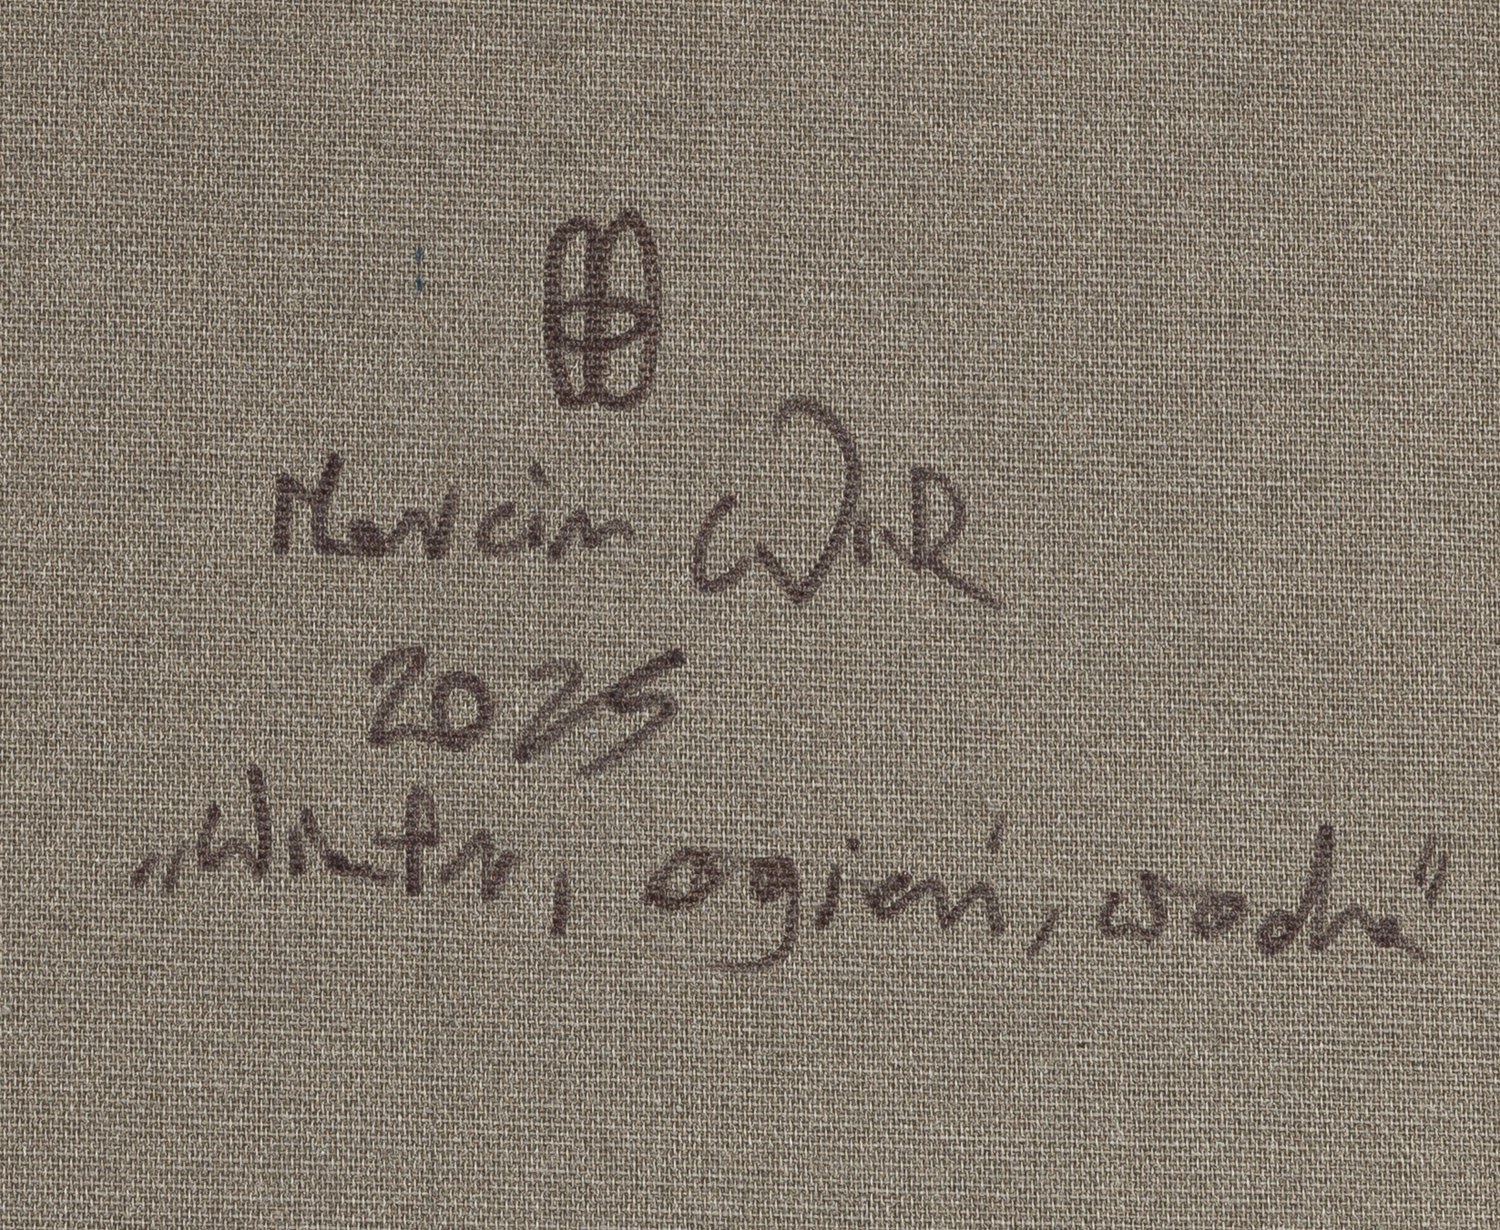 Marcin WiR
2025
„Wiatr, ogień, woda"